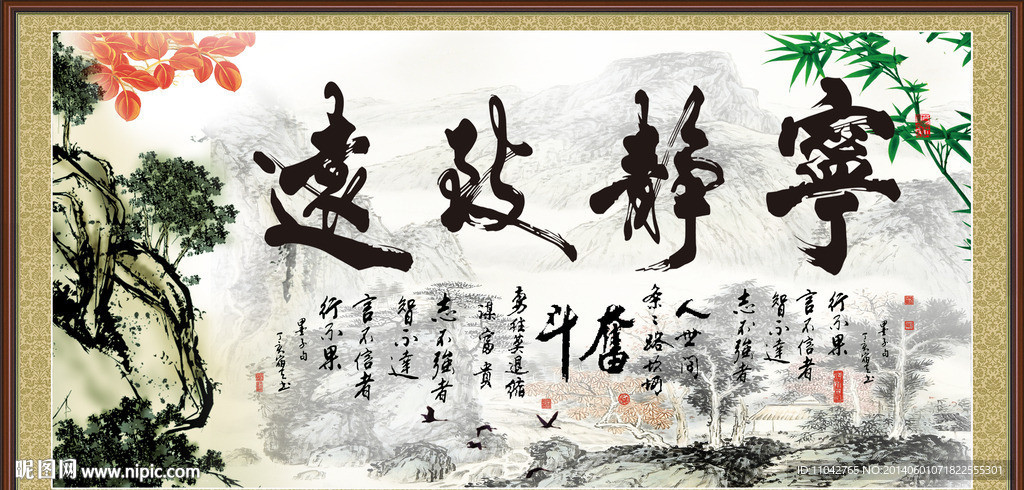 寧靜致遠
志不強者
智不達
言不信者
行不果
墨子句
奮斗
人世間
条々路坎坷
勇往莫退縮
謀富貴
志不強者
智不達
言不信者
行不果
墨子句
昵图网 www.nipic.com
ID:11042765 NO:20140601071822555301